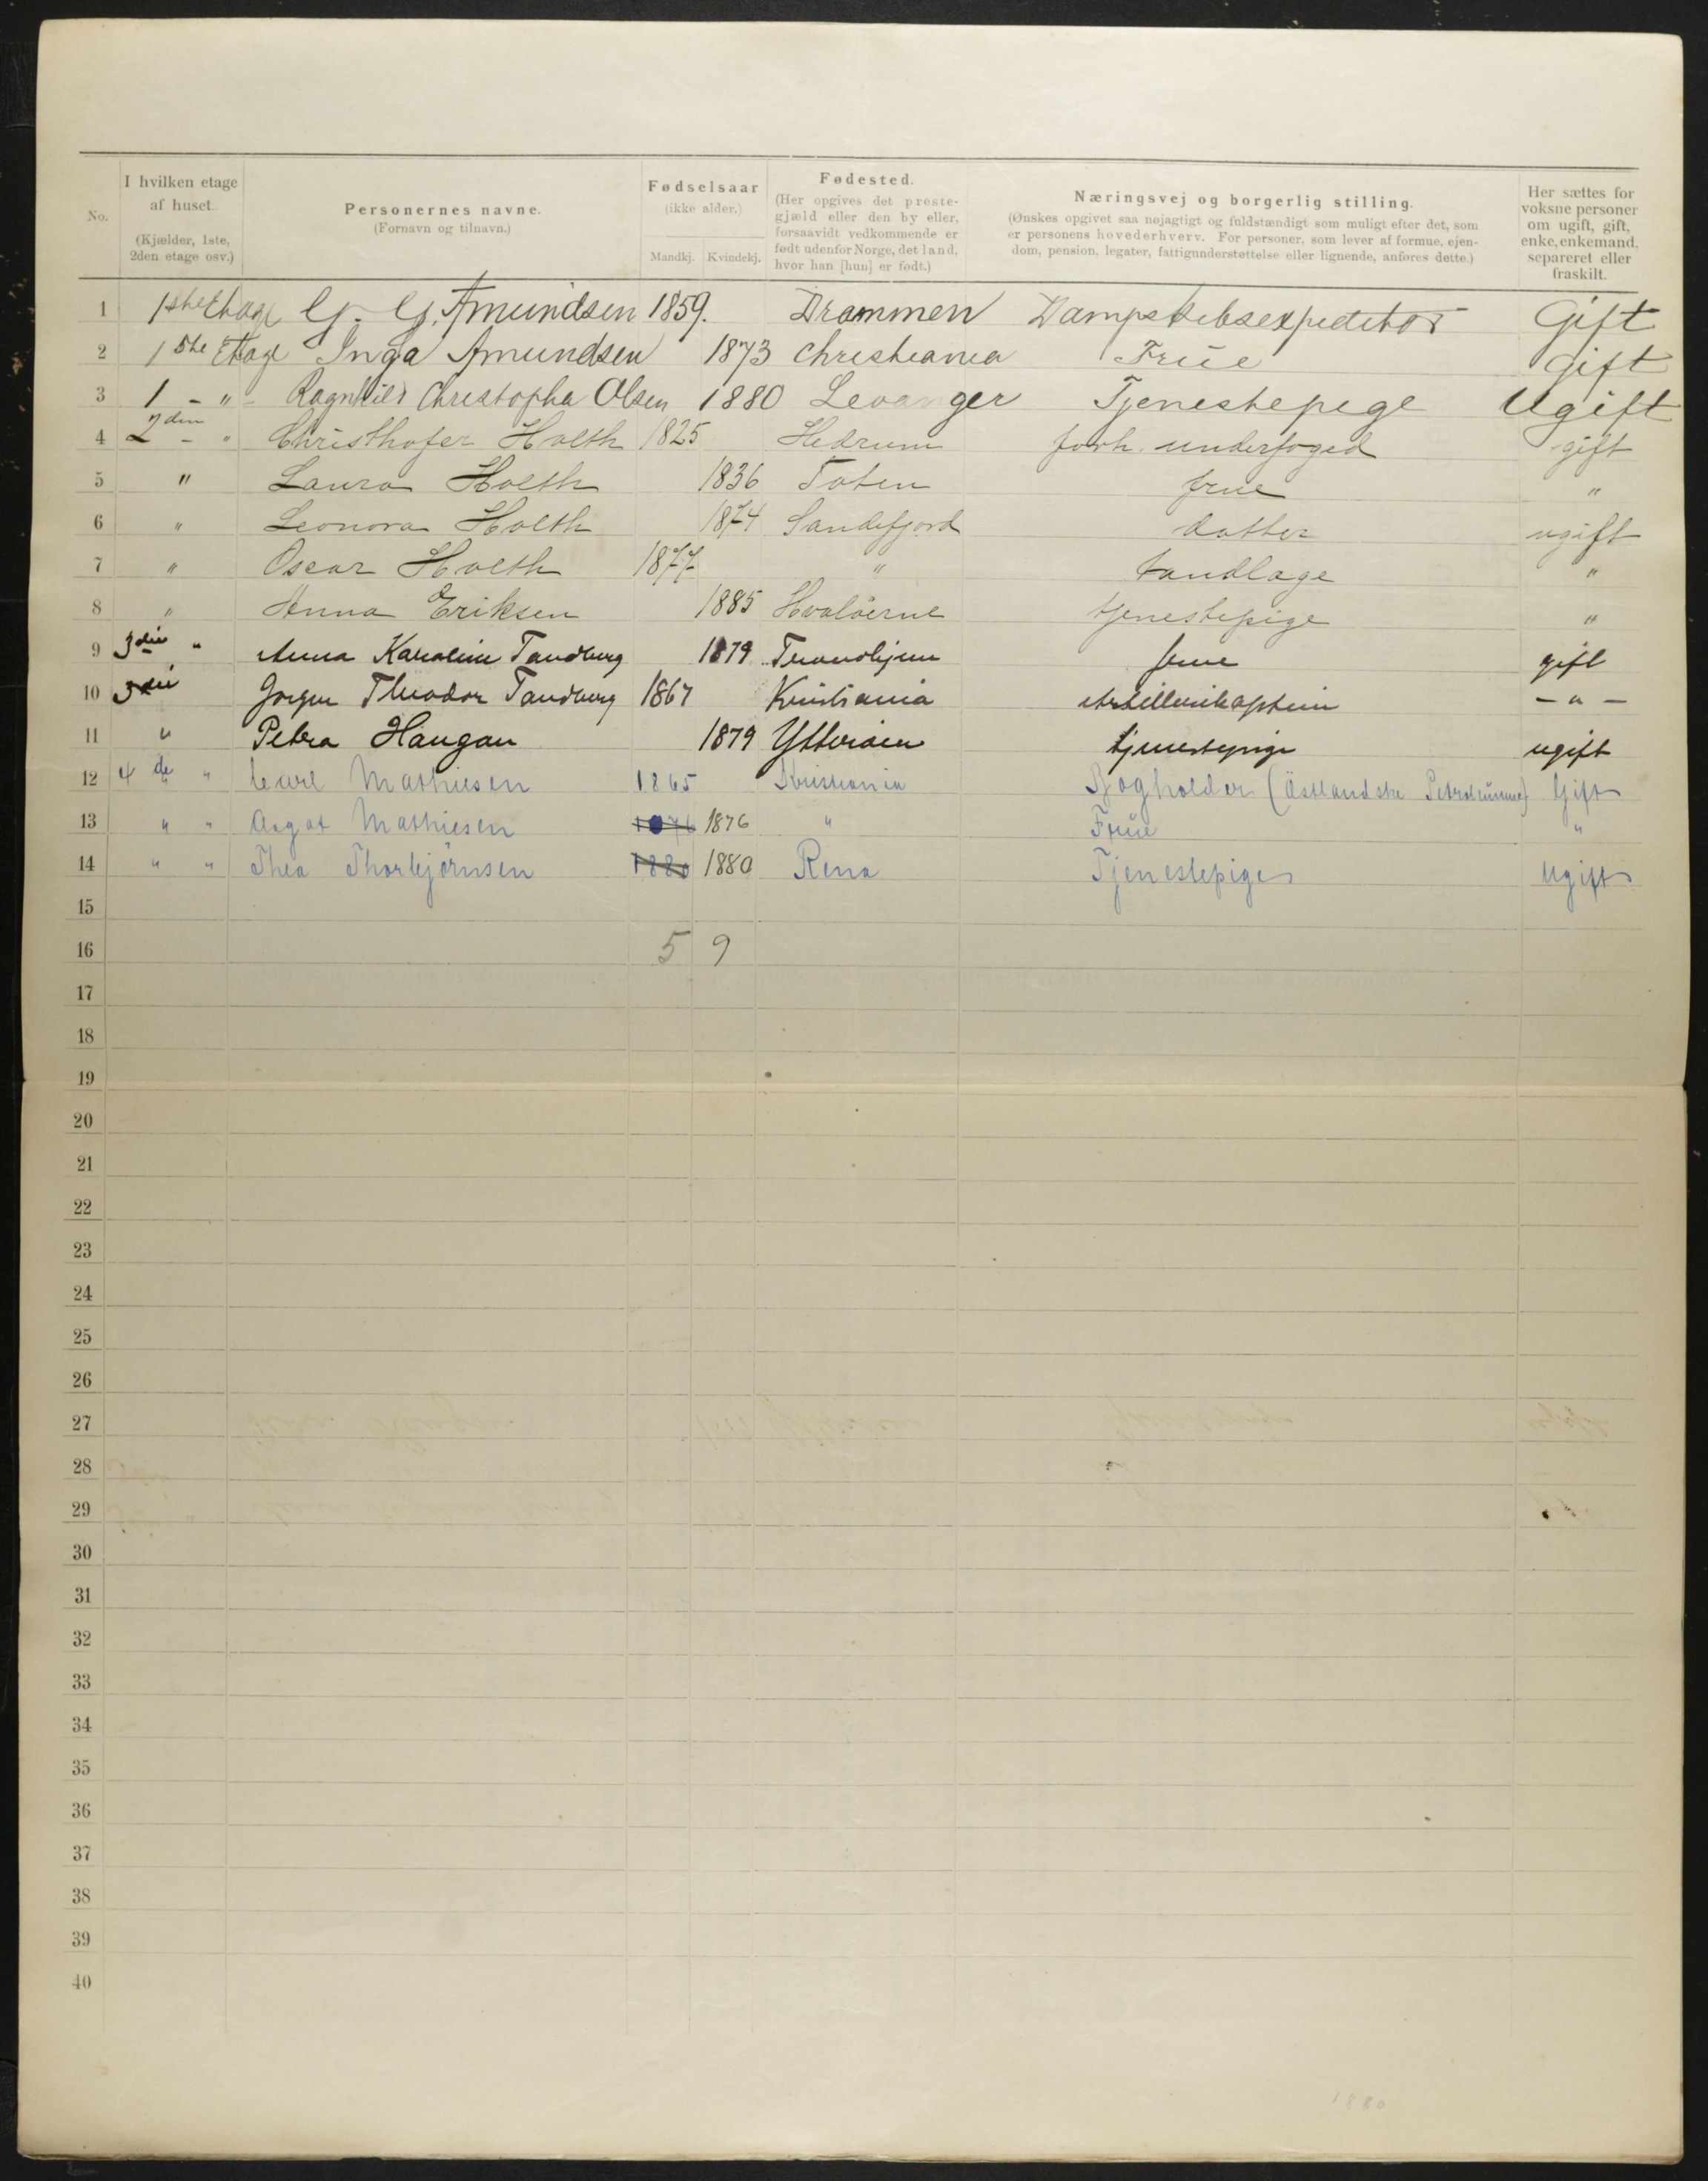 No. I hvilken etage af huset. (Kjælder, 1ste, 2den etage osv.) Personernes navne. (Fornavn og tilnavn.) Fødselsaar (ikke alder.) Mandkj. Kvindekj. Fødested. (Her opgives det prestegjæld eller den by eller, forsaavidt vedkommende er født udenfor Norge, det land, hvor han [hun] er født.) Næringsvej og borgerlig stilling. (Ønskes opgivet saa nøjagtigt og fuldstændigt som muligt efter det, som er personens hovederhverv. For personer, som lever af formue, ejendom, pension, legater, fattigunderstøttelse eller lignende, anføres dette.) Her sættes for voksne personer om ugift, gift, enke, enkemand, separeret eller fraskilt.
1 1ste Etage G. G. Amundsen 1859. Drammen Dampskibsexpeditør Gift
2 1ste Etage Inga Amundsen 1873 Christiania Frue Gift
3 1 - " - Ragnhild Christopha Olsen 1880 Levanger Tjenestepege Ugift
4 2den - " Christhofer Holth 1825 Hedrum forh. underfoged gift
5 " Laura Holth 1836 Toten frue "
6 " Leonora Holth 1874 Sandefjord datter ugift
7 " Oscar Holth 1877 " tandlæge "
8 " Anna Eriksen 1885 Hvaløerne tjenestepige "
9 3die " Anna Karoline Tandberg 1879 Trondhjem frue gift
10 3die Jørgen Theodor Tandberg 1867 Kristiania Artillerikaptein - " -
11 " Petra Haugan 1879 Ytterøen tjenestepige ugift
12 4de " Carl Mathiesen 1865 Kristiania Bogholder (Østlandske Gift
13 " " Aagot Mathiesen 1876 1876 " Frue "
14 " " Thea Thorbjørnsen 1880 1880 Rena Tjenestepige Ugift
15
16 5 9
17
18
19
20
21
22
23
24
25
26
27
28
29
30
31
32
33
34
35
36
37
38
39
40
1880